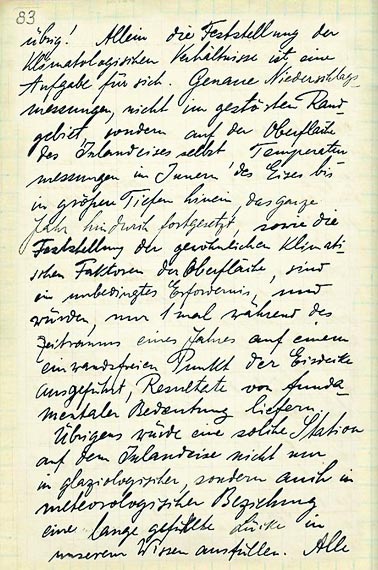 83
übrig! Allein die Feststellung der
klimatologischen Verhältnisse ist eine
Aufgabe für sich. Genaue Niederschlags-
messungen, nicht im gestörten Rand-
gebiet, sondern auf der Oberfläche
des Inlandeises selbst Temperatur
messungen im Innern des Eises bis
in großen Tiefen hinein, das ganze
Jahr hindurch fortgesetzt, sowie die
Feststellung der gewöhnlichen klimati-
schen Faktoren der Oberfläche, sind
ein unbedingtes Erfordernis, und
würden, nur 1 mal während des
Zeitraums eines Jahres auf einem
einwandsfreien Punkt der Eisdecke
ausgeführt, Resultate von funda-
mentaler Bedeutung liefern.
Übrigens würde eine solche Station
auf dem Inlandeise nicht nur
in glaziologischer, sondern auch in
meteorologischer Beziehung
eine lange gefühlte Lücke in
unserem Wissen ausfüllen. Alle